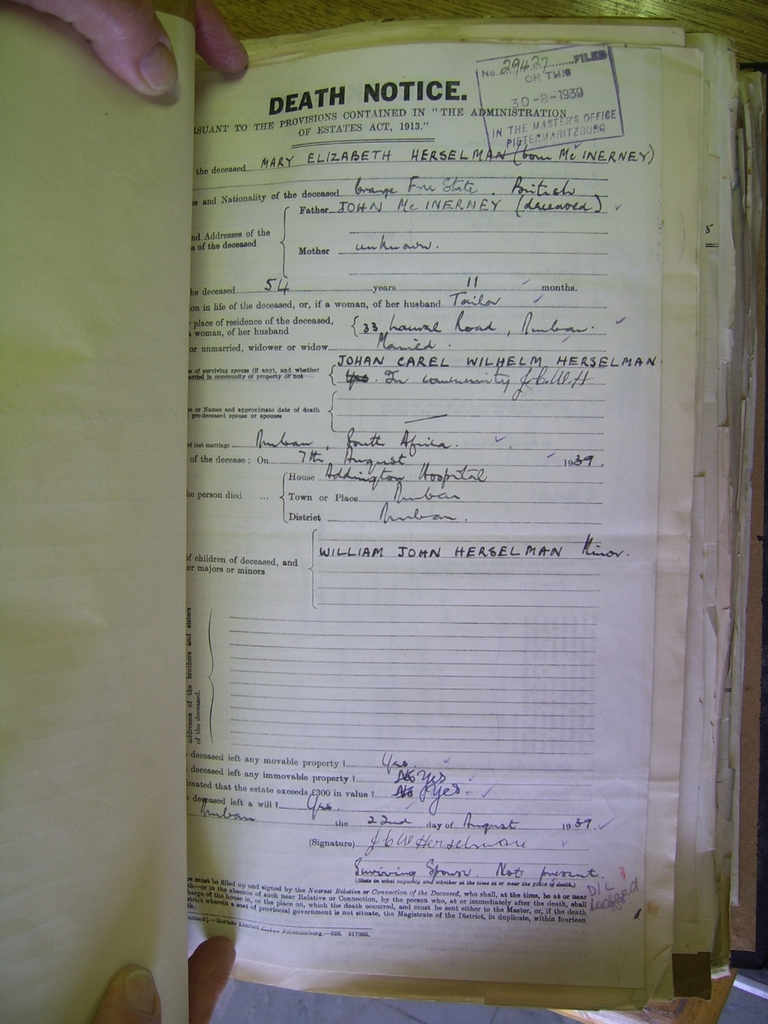 No. 29427 FILED
ON THIS
30-8-1939
IN THE MASTER'S OFFICE
PIETERMARITZBURG
DEATH NOTICE.
RSUANT TO THE PROVISIONS CONTAINED IN "THE ADMINISTRATION
OF ESTATES ACT, 1913."
the deceased MARY ELIZABETH HERSELMAN (born McINERNEY)
and Nationality of the deceased Orange Free State. British
Father JOHN McINERNEY (deceased)
nd Addresses of the
s of the deceased
Mother unknown.
he deceased 54 years 11 months.
on in life of the deceased, or, if a woman, of her husband Tailor
place of residence of the deceased,
woman, of her husband
33 Laurel Road, Durban.
or unmarried, widower or widow Married.
JOHAN CAREL WILHELM HERSELMAN
of surviving spouse (if any), and whether
married in community of property or not
Yes. In community J.C.W.H
or Names and approximate date of death
pre-deceased spouse or spouses
last marriage Durban, South Africa.
of the decease: On 7th August 1939.
House Addington Hospital
he person died ... Town or Place Durban
District Durban.
of children of deceased, and
er majors or minors
WILLIAM JOHN HERSELMAN Minor.
addresses of the brothers and sisters
of the deceased.
deceased left any movable property? Yes.
deceased left any immovable property? No Yes
imated that the estate exceeds £300 in value? No Yes.
deceased left a will? Yes.
Durban the 22nd day of August 1939.
(Signature) J C W Herselman
Surviving Spouse. Not present.
(State in what capacity and whether at the time at or near the place of death.)
must be filled up and signed by the Nearest Relative or Connection of the Deceased, who shall, at the time, be at or near
or in the absence of such near Relative or Connection, by the person who, at or immediately after the death, shall
charge of the house in, or the place on, which the death occurred, and must be sent either to the Master, or, if the death
strict wherein a seat of provincial government is not situate, the Magistrate of the District, in duplicate, within fourteen